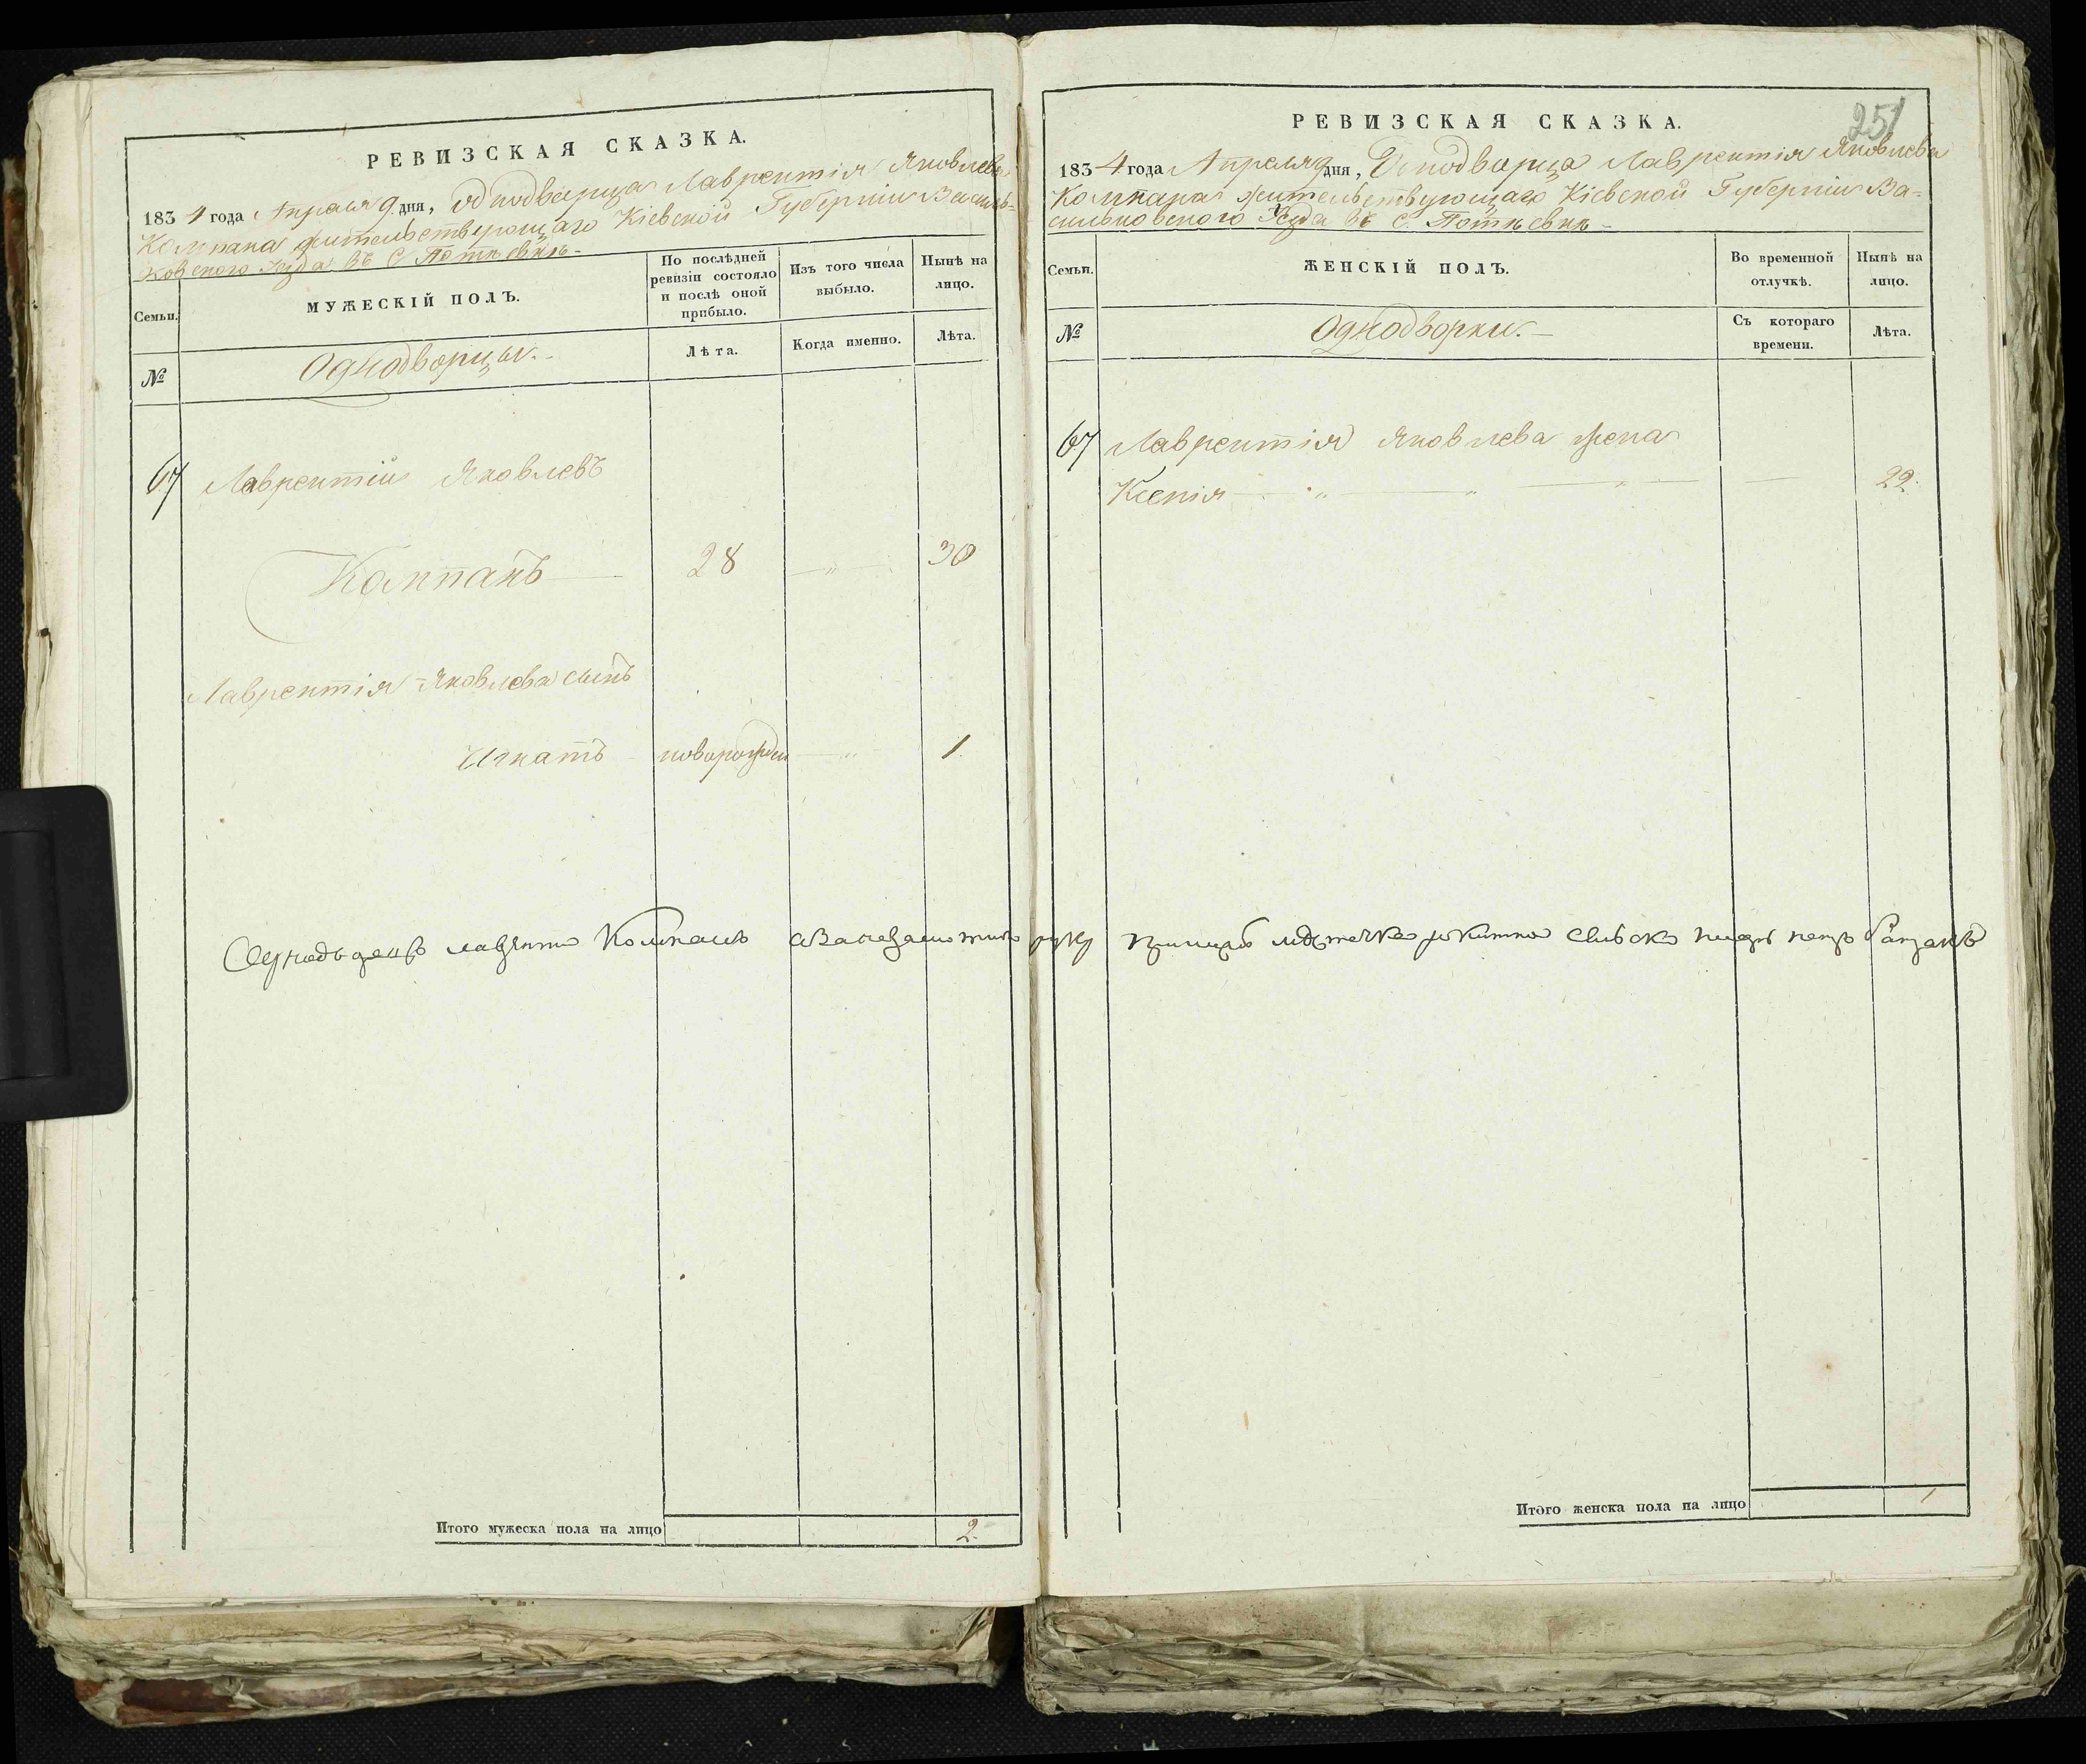 РЕВИЗСКАЯ СКАЗКА.
1834 года Апреля 9 дня, однодворца Лаврентія Яковлева
Колпака жительствующаго Кіевской Губерніи Василь-
ковского Уезда въ С. Потѣевкѣ -
Семьи.
МУЖЕСКІЙ ПОЛЪ.
По послѣдней ревизіи состояло и послѣ оной прибыло.
Изъ того числа выбыло.
Нынѣ на лицо.
№
Однодворцы.
Лѣта.
Когда именно.
Лѣта.
67 Лаврентій Яковлевъ
28 — „ — 30
Лаврентія Яковлева сынъ
Игнатъ новорожден — „ 1.
руку
Итого мужеска пола на лицо 2.
251
РЕВИЗСКАЯ СКАЗКА.
1834 года Апреля 9 дня, Однодворца Лаврентія Яковлева
жительствующаго Кіевской Губерніи Ва-
сильковского Уезда въ С. Потѣевкѣ -
Семьи.
ЖЕНСКІЙ ПОЛЪ.
Во временной отлучкѣ.
Нынѣ на лицо.
№
Однодворки. —
Съ котораго времени.
Лѣта.
67 Лаврентія Яковлева жена
Ксенія — „ — „ — „ — 22.
Итого женска пола на лицо 1